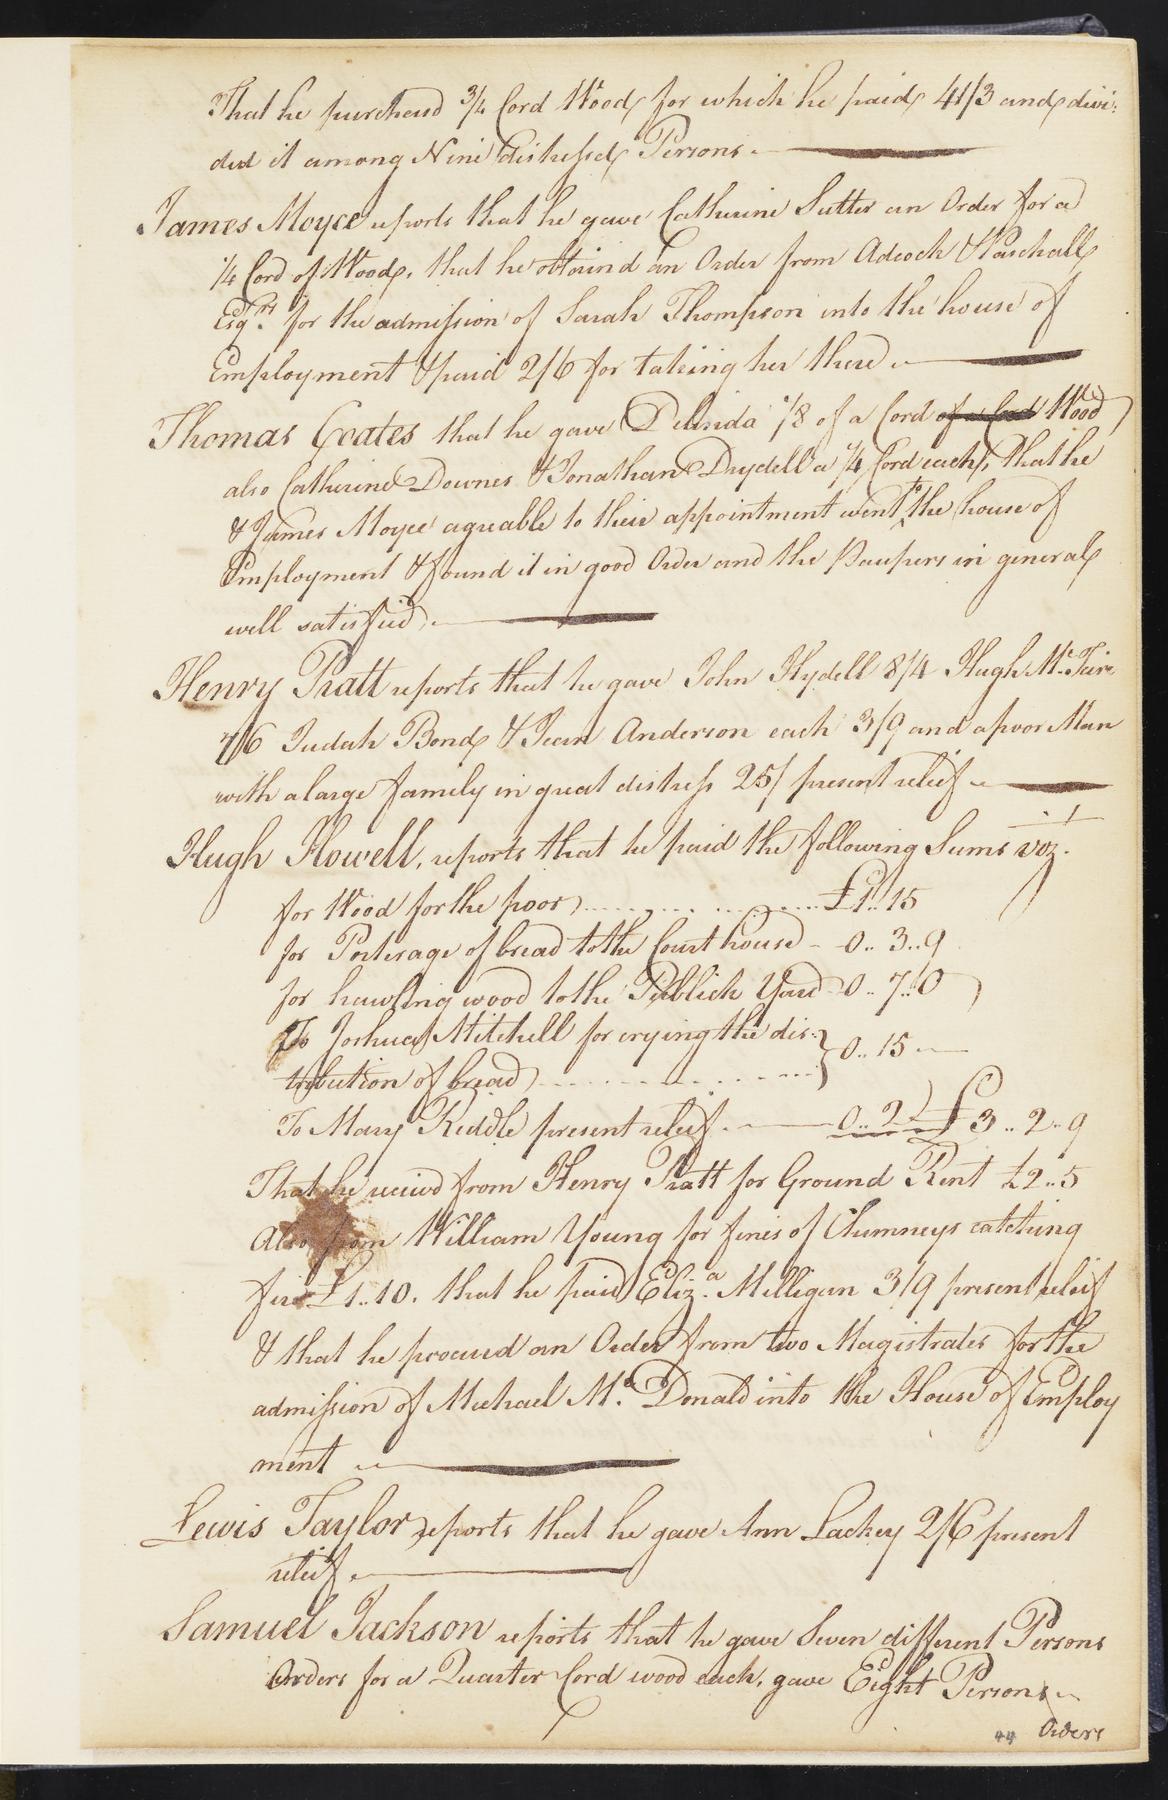 That he purchasd 3/4 Cord Wood for which he paid 41/3 and divi:
ded it among Nine distressed Persons
James Moyce reports that he gave Catherine Sutter an Order for a
1/4 Cord of Wood, that he obtaind an Order from Adcock & Paschall
Esqrs. for the admission of Sarah Thompson into the house of
Employment & paid 2/6 for taking her there
Thomas Coates that he gave Delinda 1/8 of a Cord of a Cord Wood
also Catherine Downes & Jonathan Drydell a 1/4 Cord each, that he
& James Moyce agreable to their appointment went to the house of
Employment & found it in good Order and the Paupers in general
well satisfied,
Henry Pratt reports that he gave John Hydell 8/4 Hugh Mc.
7/6 Judah Bond & Jean Anderson each 3/9 and a poor Man
with a large family in great distress 25/ present relief
Hugh Howell, reports that he paid the following Sums viz.
for Wood for the poor £1..15
for Porterage of bread to the Court house - 0..3..9
for hawling wood to the Publick Yard 0..7..0
To Joshua Mitchell for crying the dis:
tribution of bread } 0..15
To Mary Riddle present relief. 0..2 £3..2..9
That he receivd from Henry Pratt for Ground Rent £2..5
Also from William Young for fines of Chimneys catching
fire £1..10. that he paid Eliza. Milligan 3/9 present releif
& that he procured an Order from two Magistrates for the
admission of Michael Mc. Donald into the House of Employ
ment
Lewis Taylor reports that he gave Ann Lackey 2/6 present
relief
Samuel Jackson reports that he gave Seven different Persons
Orders for a Quarter Cord wood each, gave Eight Persons
Orders
44